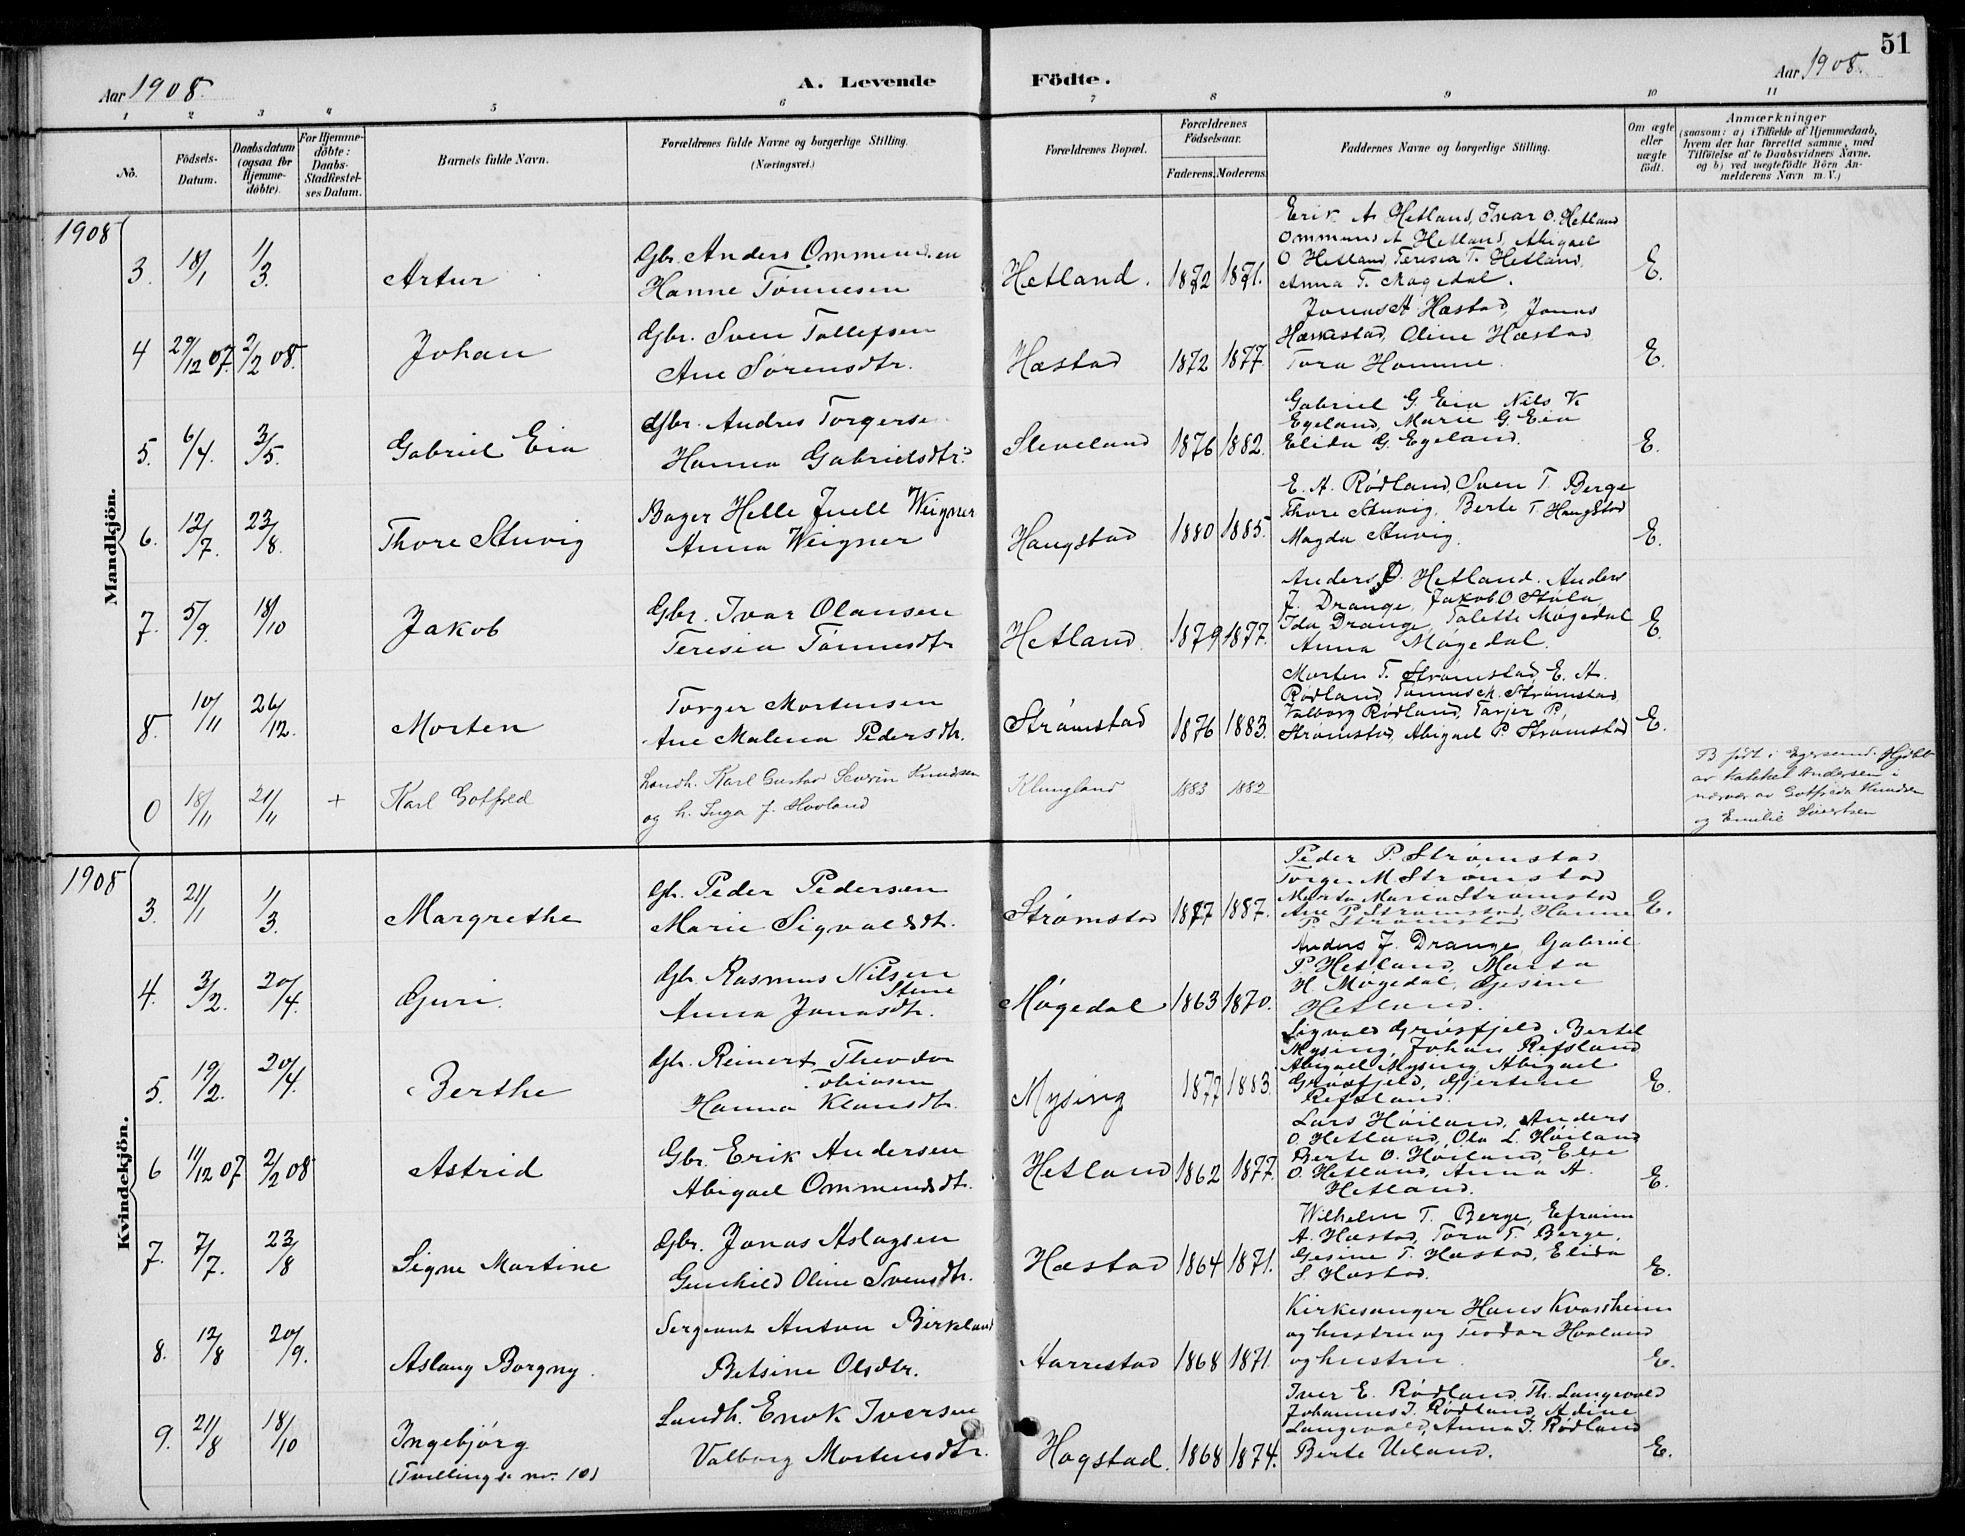 51
Aar 1908.
A. Levende
Födte.
Aar 1908.
1 2 3 4 5 6 7 8 9 10 11
No.
Födsels-Datum.
Daabsdatum (ogsaa for Hjemme-döbte).
For Hjemme-döbte: Daabs-Stadfæstel-ses Datum.
Barnets fulde Navn.
Forældrenes fulde Navne og borgerlige Stilling. (Næringsvei.)
Forældrenes Bopæl.
Forældrenes Födselsaar.
Faderens. Moderens.
Faddernes Navne og borgerlige Stilling.
Om ægte eller uægte födt.
Anmærkninger
(saasom: a) i Tilfælde af Hjemmedaab,
hvem der har forrettet samme, med
Tilföielse af to Daabsvidners Navne.
og b) ved uægtefödte Börn An-
melderens Navn m. V.)
1908
Mandkjön.
3. 18/1 1/3. Artur
Gbr. Anders Ommundsen
Hanne Tønnesen
Hetland. 1872 1871.
Erik A Hetland, Ivar O. Hetland
Ommund A Hetland, Abigael
O Hetland, Teresia T. Hetland,
Anna T. Møgedal.
E.
4 29/12 07. 2/2 08. Johan
Gbr. Sven Tollefsen
Ane Sørensdtr.
Hæstad 1872 1877.
Jonas A Hæstad, Jonas
Hæskestad, Oline Hæstad
Tora Homme.
E.
5. 6/4. 3/5. Gabriel Eia
Gbr. Andres Torgerse
Hanna Gabrielsdtr.
Sleveland 1876 1882.
Gabriel G. Eia Nils K
Egeland, Marie G. Eia
Elida G. Egeland.
E.
6. 12/7. 23/8. Thore Stuvig
Bager Helle Juell Weigner
Anna Weigner
Haugstad 1880 1885.
E. A. Rødland, Sven T. Berge
Thore Stuvig, Berte T Haugstad
Magda Stuvig.
E.
7. 5/9. 18/10 Jakob
Gbr. Ivar Olausen
Teresia Tønnesdtr
Hetland. 1879 1877.
Anders O. Hetland. Anders
J. Drange, Jakob O Støla
Ida Drange, Talette Møgedal
Anna Møgedal.
E.
8. 10/11 26/12. Morten
Torger Mortensen
Ane Malena Pedersdtr.
Strømstad 1876 1883.
Morten T. Strømstad, E. A.
Rødland, Tønnes M. Strømstad
Valborg Rødland, Tarjer P.
Strømstad, Abigael P. Strømstad
E.
0 18/11 21/11 + Karl Gotfred
Landh. Karl Gustav Severin Knudsen
og h. Inga J. Hovland
Klungland 1883 1882
B født i Egersund. Hjdbt
av Andersen i
nærvær av Gotfreda Knudsen
og Emilie Sivertsen
1908
Kvindekjön.
3. 21/1 1/3. Margrethe
Gbr. Peder Pedersen
Marie Sigvaldsdtr.
Strømstad 1877 1887.
Peder P. Strømstad
Torger M Strømstad
Marta Maria Strømstad
Ane P Strømstad, Hanne
P Strømstad
E.
4. 3/2. 20/4. Guri.
Gbr. Rasmus Nilsen
Stene
Anna Jonasdtr.
Møgedal 1863 1870.
Anders J. Drange, Gabriel
P. Hetland, Marta
H. Møgedal, Gesine
Hetland.
5. 19/2. 20/4. Berthe
Gbr. Reinert Theodor
Tobiasen
Hanna Klausdtr.
Mysing 1877 1883
Sigvald Grøsfjeld, Bertel
Mysing, Johan Refsland
Abigael Mysing, Abigael
Grøsfjeld, Gjertine
Refsland.
E.
6 11/12 07 2/2 08 Astrid
Gbr. Erik Andersen
Abigael Ommundsdtr.
Hetland 1862 1877.
Lars Høiland, Anders
O. Hetland, Ola L. Høiland
Berte O. Høiland, Else
O. Hetland, Anna A.
Hetland.
E.
7. 7/7. 23/8 Signe Martine
Gbr. Jonas Aslagsen
Gunhild Oline Svensdtr.
Hæstad 1864 1871.
Wilhelm T. Berge, Efraim
A. Hæstad, Tora T. Berge,
Gesine T. Hæstad, Elida
S Hæstad.
E.
8. 12/8 20/9. Aslaug Borgny.
Sergeant Anton Birkeland
Betsine Olsdtr.
Aarrestad 1868 1871.
Kirkesanger Hans Kvassheim
og hustru og Teodor Hovland
og hustru.
E.
9. 21/8 18/10 Ingebjørg
(Tvilling nr. 10)
Landh. Enok Iversen
Valborg Mortensdtr.
Hogstad. 1868 1874.
Iver E. Rødland, Th. Langevald
Johannes I. Rødland, Adine
Langevald, Anna I. Rødland
Berte Ueland.
E.